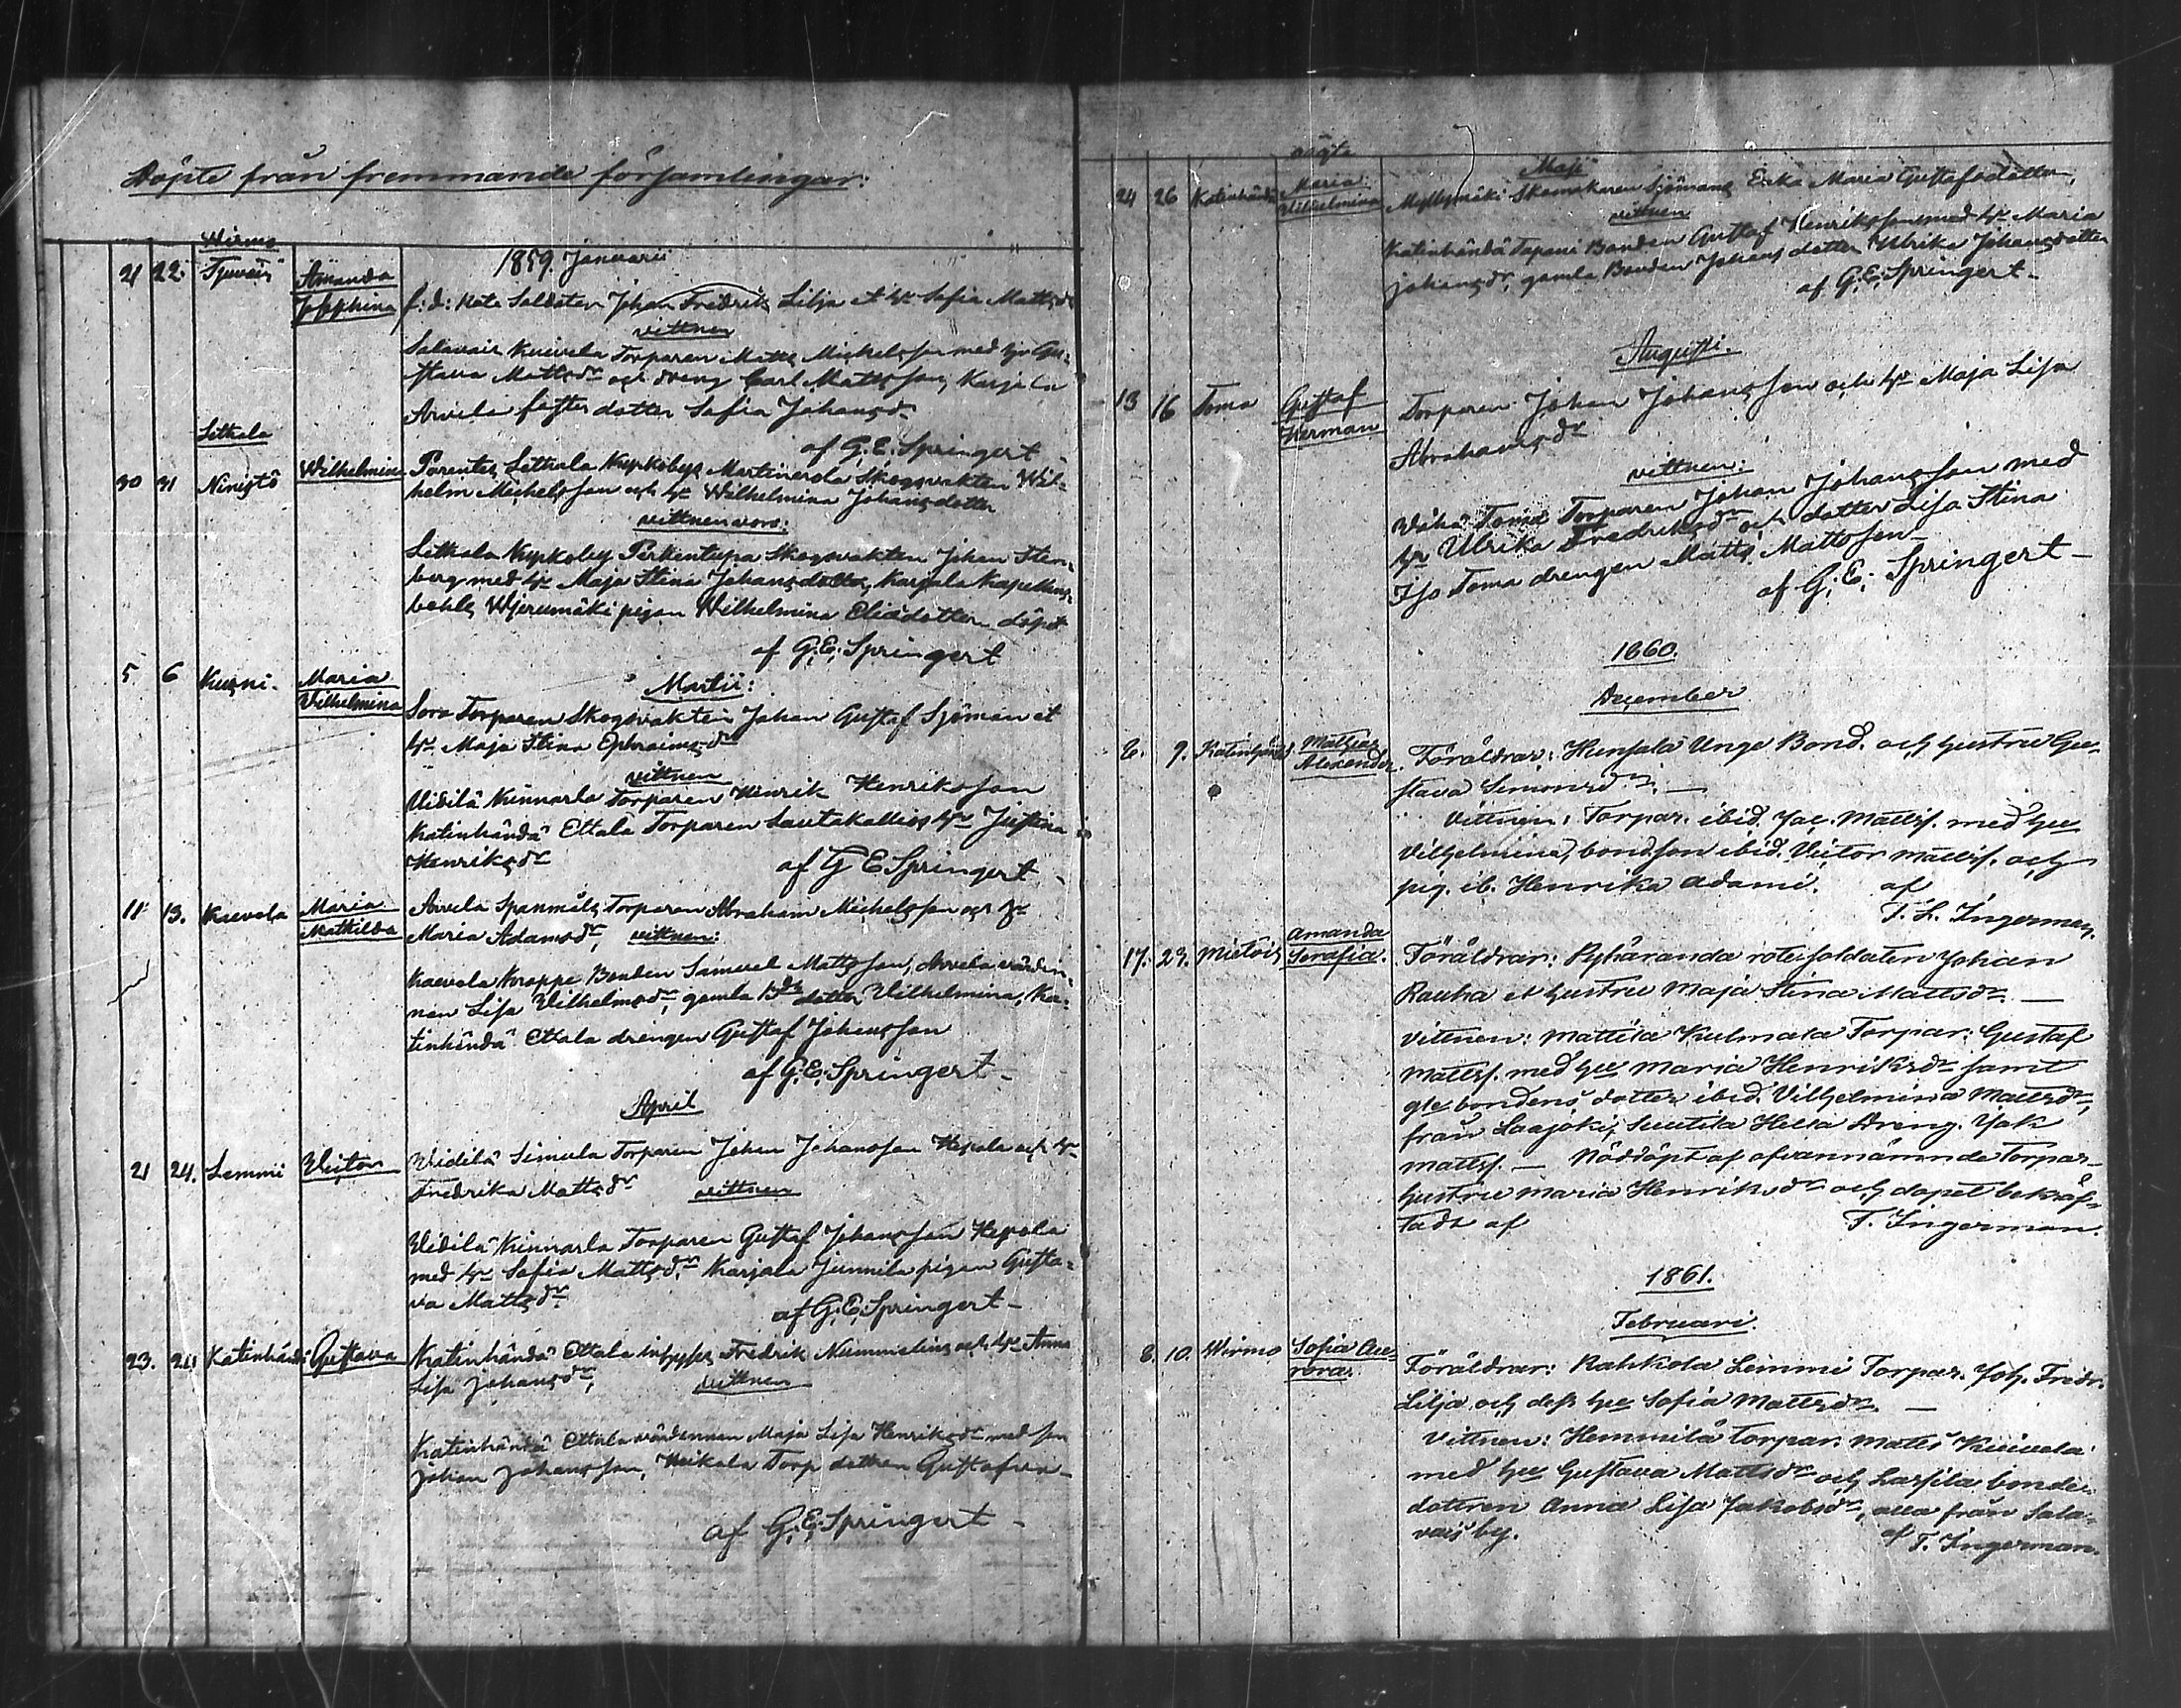 Döpte från fremmande församlingar.
Wirmo
1859. Januarii
21 22. Amanda
Josephina f: d: Rote Soldaten Johan Fredrik Lilja et hu Sofia Mattsdr
vittnen
Salavais Kuivela Torparen Matts Michelsson med hu Gu-
stava Mattsdr och dreng Carl Mattsson, Karjala
Arvela dotter Sofia Johansdr
af G. E. Springert
Letala
30 31 Ninistö Wilhelmina Parentes Letala Nypköby Skogsvakten Wil-
helm Michelsson och hu Wilhelmina Johansdotter
vittnen voro:
Letala Nypköby Perkentupa Skogsvakten Johan Sten-
berg med hu Maja Stina Johansdotter, Karjala
pigan Wilhelmina Eliædotter döpt
af G. E. Springert
Martii:
5 6 Kusni. Maria
Vilhelmina Soro Torparen Skogsvakten Johan Gustaf Sjöman et
hu Maja Stina Ephraimsdr
vittnen
Widilä Kinnarla Torparen Henrik Henriksson
Katinhändä Ettala Torparen Lautakallios hu Justina
Henriksdr af G E Springert
11 13. Kaevola Maria
Mathilda Arvela Spannmåls Torparen Abraham Michelsson och hu
Maria Adamsdr, vittnen:
Kaevola Knappe Bonden Samuel Mattsson, Arvela värdin-
nan Lisa Vilhelmsdr, gamla Bds dotter Vilhelmina, Ka-
tinhändä Ettala drengen Gustaf Johansson
af G. E. Springert
April
21 24. Lemmi Victor Widilä Simula Torparen Johan Johansson Hepola och hu
Fredrika Mattsdr vittnen
Widilä Kinnarla Torparen Gustaf Johansson Hepola
med hu Sofia Mattsdr Karjala Junnila pigan Gusta-
va Mattsdr af G. E. Springert
23. Katinhändä Gustava Katinhändä Ettala inhyses Fredrik Nummelin och hu Anna
Lisa Johansdr, vittnen
Katinhändä Ettala värdinnan Maja Lisa Henriksdr med son
Johan Johansson, Torp dottren Gustafva
af G. E. Springert
oägta
Maji
24 26 Katinhändä Maria
Wilhelmina Myllymäki Skomakaren Sjömans Erika Maria Gustafsdotter,
vittnen
Katinhändä Tapani Bonden Gustaf Henriksson med hu Maria
Johansdr, gamla Bonden Johans dotter Ulrika Johansdotter
af G. E. Springert
Augusti.
13 16 Toma Gustaf
Herman Torparen Johan Johansson och hu Maja Lisa
Abrahamsdr
vittnen:
Wähä Toma Torparen Johan Johansson med
hu Ulrika Fredriksdr och dotter Lisa Stina
Iso Toma drengen Matts Mattsson
af G. E. Springert
1860.
December
6. 9. Katinhändä Mathias
Alexander. Föräldrar: Hunsala Unge Bond. och hustru Gu-
stava Simonsdr. —
Vittnen: Torpar. ibid. Jac. Mattss. med hu
Vilhelmina, bondson ibid. Victor Mattss. och
pig. ib. Henrika Adami. af
T. L. Ingerman.
17. 23. Mietois Amanda
Serafia. Föräldrar: Pyhäranda rotesoldaten Johan
Rauha et hustru Maja Stina Mattsdr. —
Vittnen: Mattila Kulmala Torpar: Gustaf
Mattss. med hu Maria Henriksdr samt
gle bondens dotter ibid. Vilhelmina Mattsdr,
från Laajoki, Suutila Dreng. Jak
Mattss. — Nöddöpt af ofvannämnde Torpar-
hustru Maria Henriksdr och dopet bekräf-
tadt af T. Ingerman.
1861.
Februari.
8. 10. Wirmo Sofia Au-
rora. Föräldrar: Rahkola Lemmi Torpar. Joh. Fredr.
Lilja och dess hu Sofia Mattsdr. —
Vittnen: Hemmilä torpar. Matts Kuivela
med hu Gustava Mattsdr och Lassila bonde-
dottren Anna Lisa Jakobsdr, alla från Sala-
vais by. af T. Ingerman.